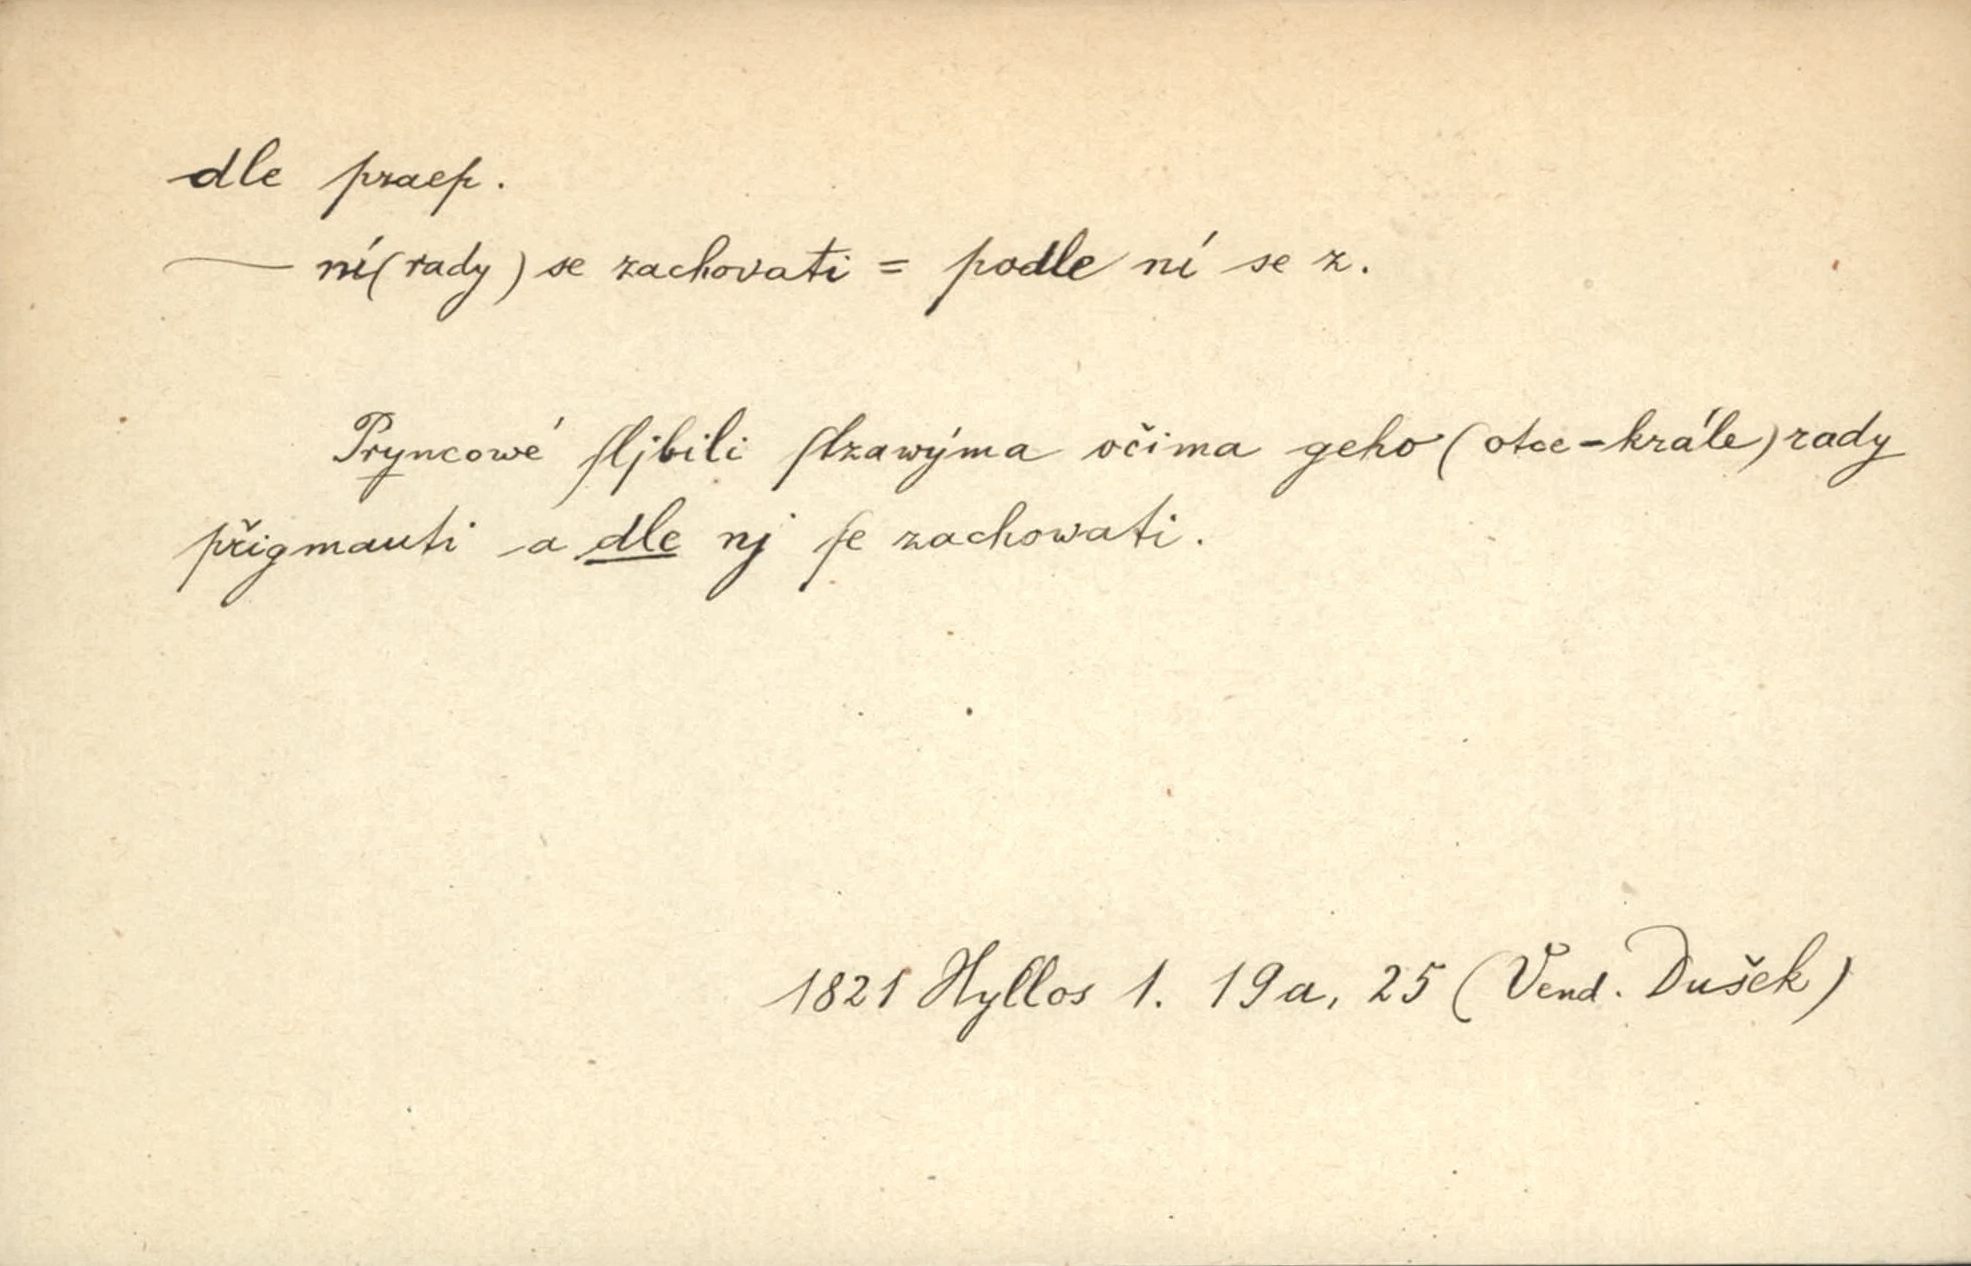 dle praep.
— ní (rady) se zachovati = podle ní se z.
Pryncowé ſljbili ſlzawýma očima geho (otce-krále) rady
přigmauti a dle nj ſe zachowati.
1821 Hyllos 1. 19a, 25 (Vend. Dušek)